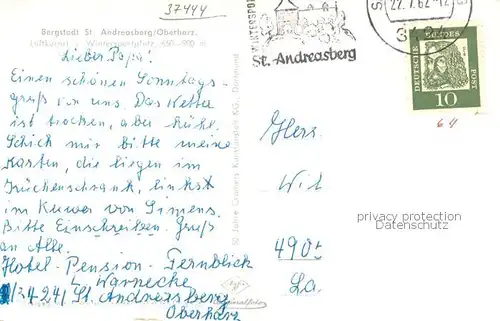 37444
Bergstadt St. Andreasberg/Oberharz.
Luftkurort Wintersportplatz, 650-900 m
Lieber Papa!
Einen schönen Sonntags-
gruß von uns Das Wetter
ist trocken, aber kühl.
Schick mir bitte meine
Karten, die liegen im
Küchenschrank, links
im Kuwer von Simens.
Bitte Einschreiben. Gruß
an Alle.
Hotel-Pension-Fernblick
L. Warnecke
3424 St. Andreasberg
Oberharz
50 Jahre Cramers Kunstanstalt KG., Dortmund
WINTERSPORT
St. Andreasberg
22.7.62-12
DEUTSCHE BUNDESPOST
10
64
Herr
Wit
490
La
privacy protection
Datenschutz